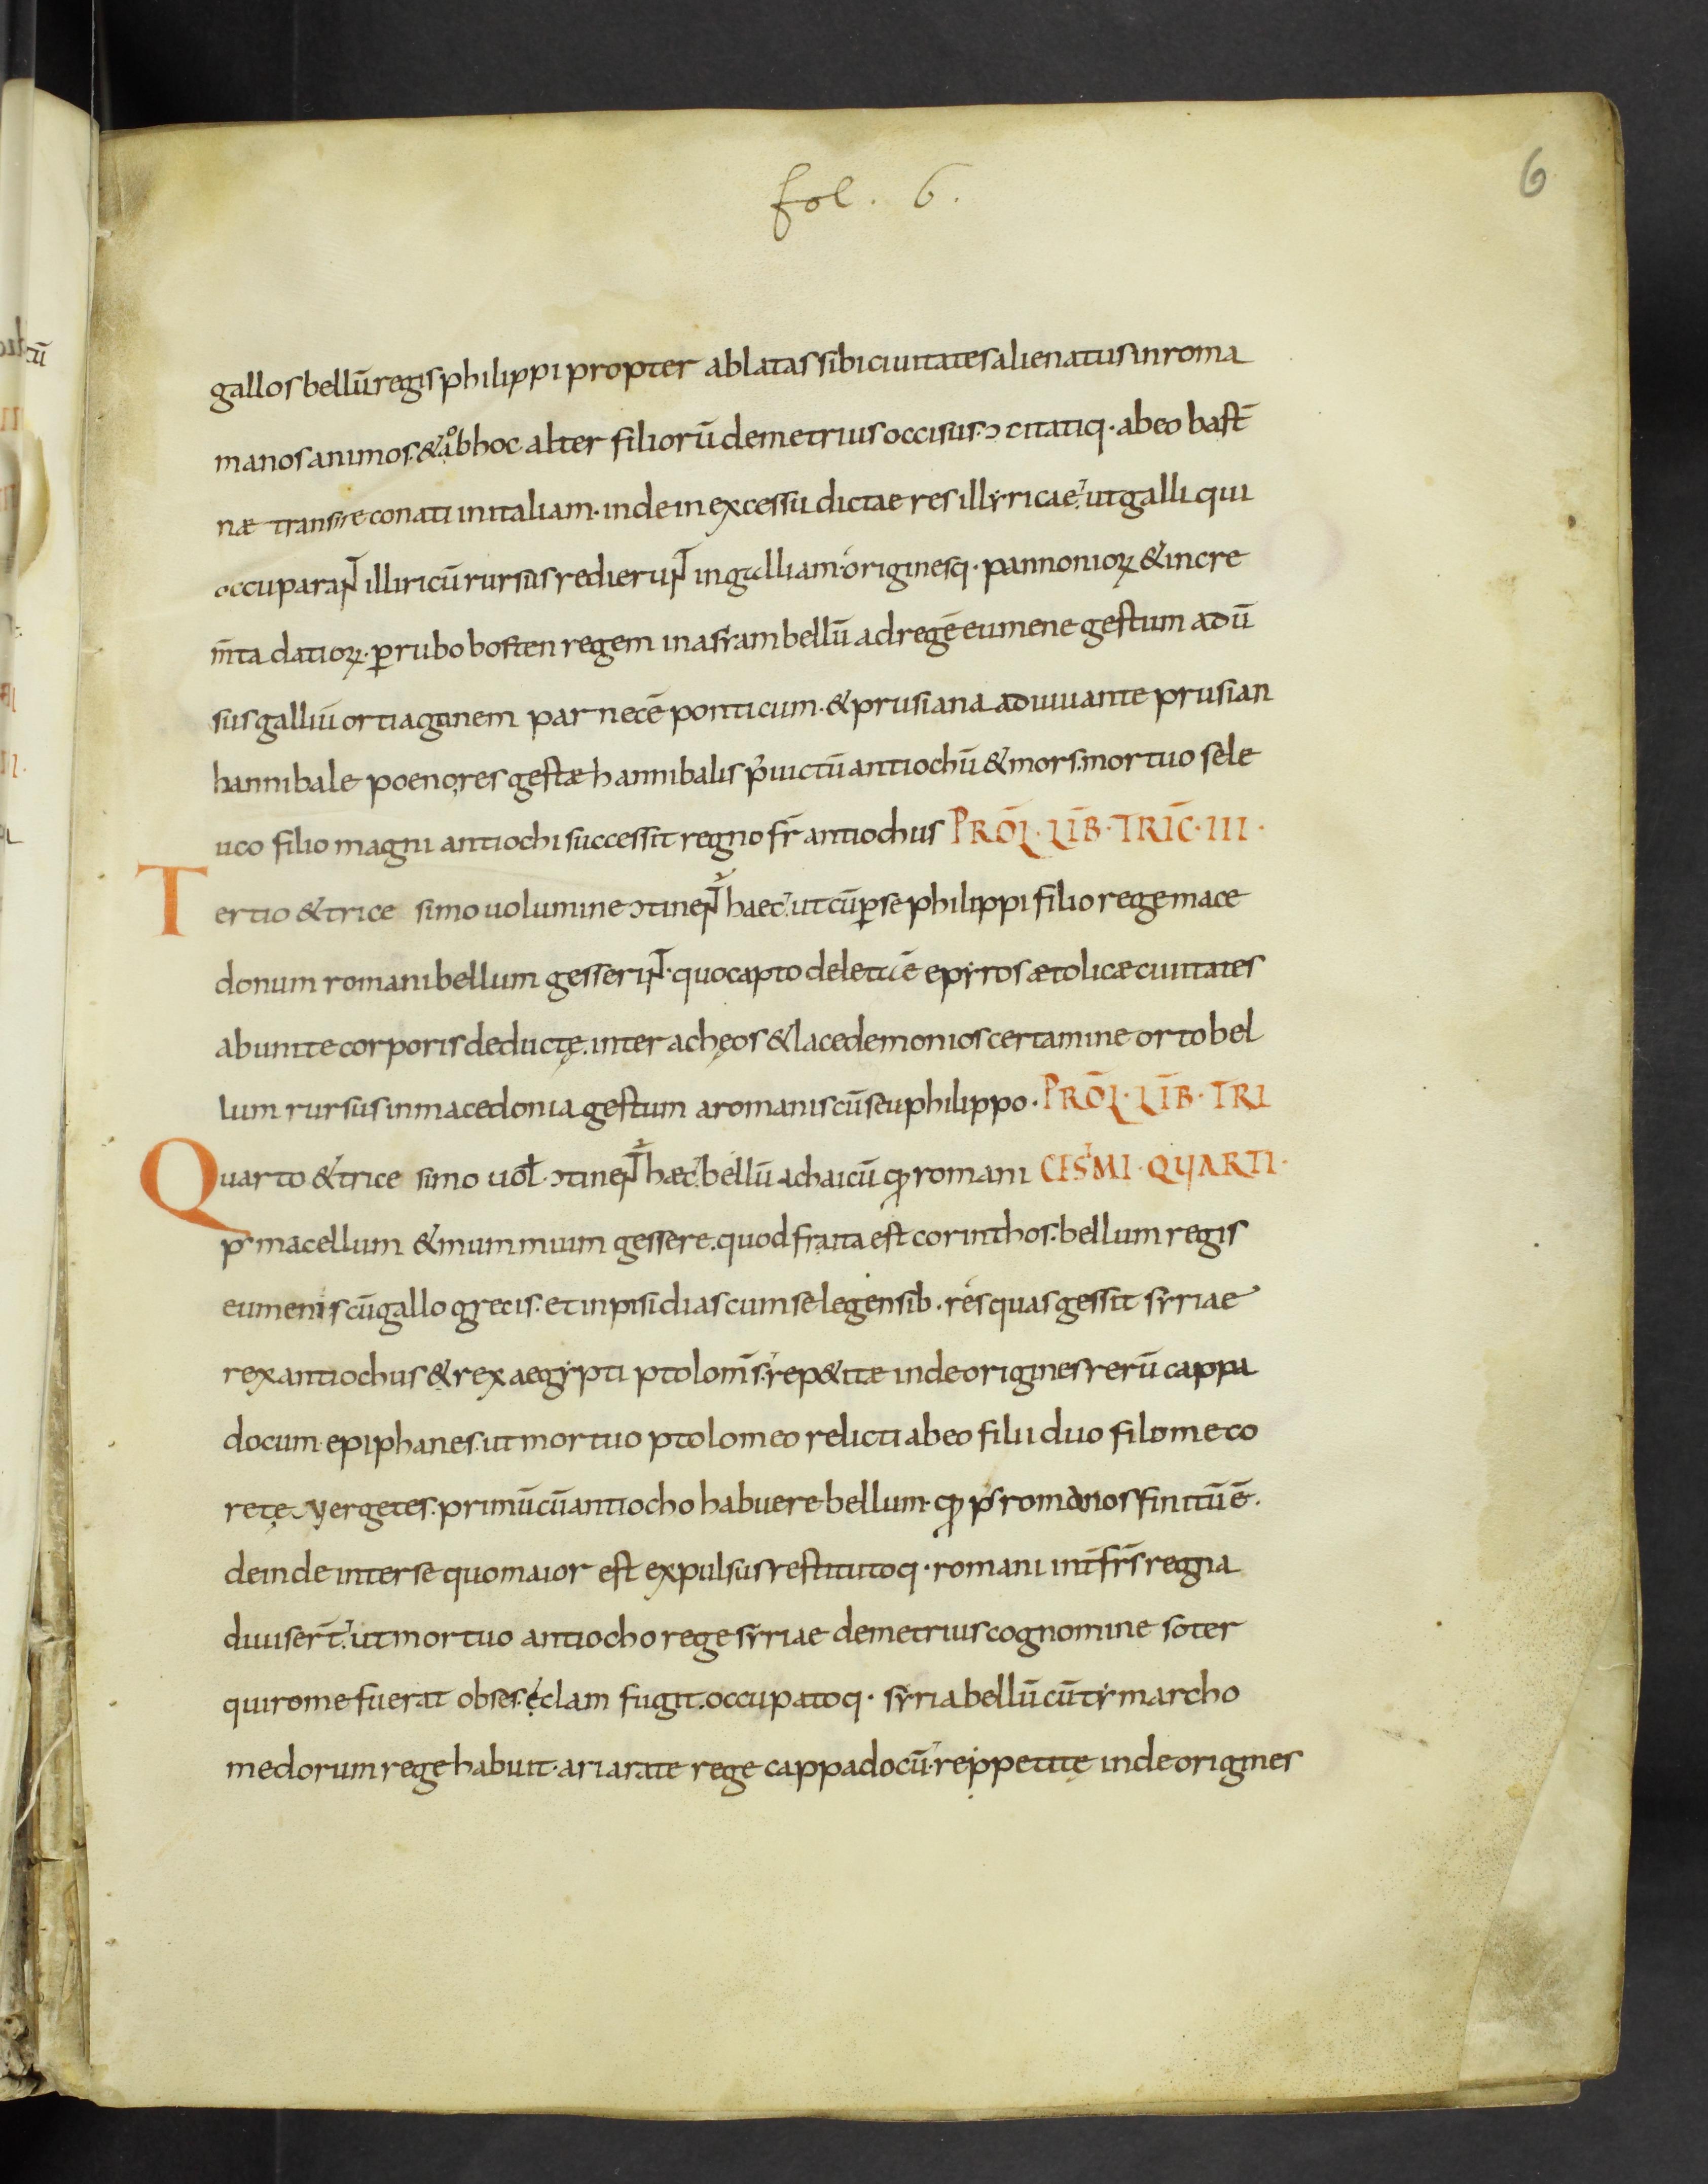 fol. 6.
6
gallos bellū regis philippi propter ablatas sibi ciuitates alienatus in roma
manos animos. & ob hoc alter filiorū demetrius occisus. ɔcitatiq· ab eo bast̄
næ transire conati in italiam· inde in excessu dictae res illyricae. ut galli qui
occuparaɴt̄ illiricū rursus redieruɴt̄ in galliam· originesq· pannonioꝝ & incre
m̄ta datioꝝ· ꝑ rubobosten regem in asiram bellū ad regē eumene gestum adū
sus galliū ortiagonem par necē ponticum· & prusiana adiuuante prusian
hannibale poeno. res gestæ hannibalis p̓ uictū antiochū & mors. mortuo sele
uco filio magni antiochi successit regno fr̄ antiochus PROL̄· LIB̄· TRIC̄· III·
Tertio & trice simo uolumine ɔtineɴt̄ haec. ut cū ꝑse philippi filio rege mace
donum romani bellum gesseriɴt̄· quo capto deleta ē epyros ætolicæ ciuitates
ab unite corporis deductę. inter achęos & lacedemonios certamine orto bel
lum rursus in macedonia gestum a romanis cū seuphilippo· PROL̄· LIB̄· TRI
Quarto & trice simo uol̄· ɔtineɴt̄ hæc. bellū achaicū qđ romani CESMI· QUARTI·
p̓ macellum & mummium gessere. quod fratta est corinthos. bellum regis
eumenis cū gallo grecis. et in pisidias cum selegensib· res quas gessit syriae
rex antiochus & rex aegypti ptolom̄s. rep&itæ inde origines rerū cappa
docum· epiphanes. ut mortuo ptolomeo relicti ab eo filii duo filomeco
retę uergetes. primū cū antiocho habuere bellum· qđ p̓ romanos finitū ē·
deinde inter se quo maior est expulsus restitutoq· romani int̄ fr̄s regna
diuisert̄. ut mortuo antiocho rege syriae demetrius cognomine soter
qui rome fuerat obses. clam fugit. occupatoq· syria bellū cū tymarcho
medorum rege habuit· ariarate rege cappadocū· reppetitę inde origines